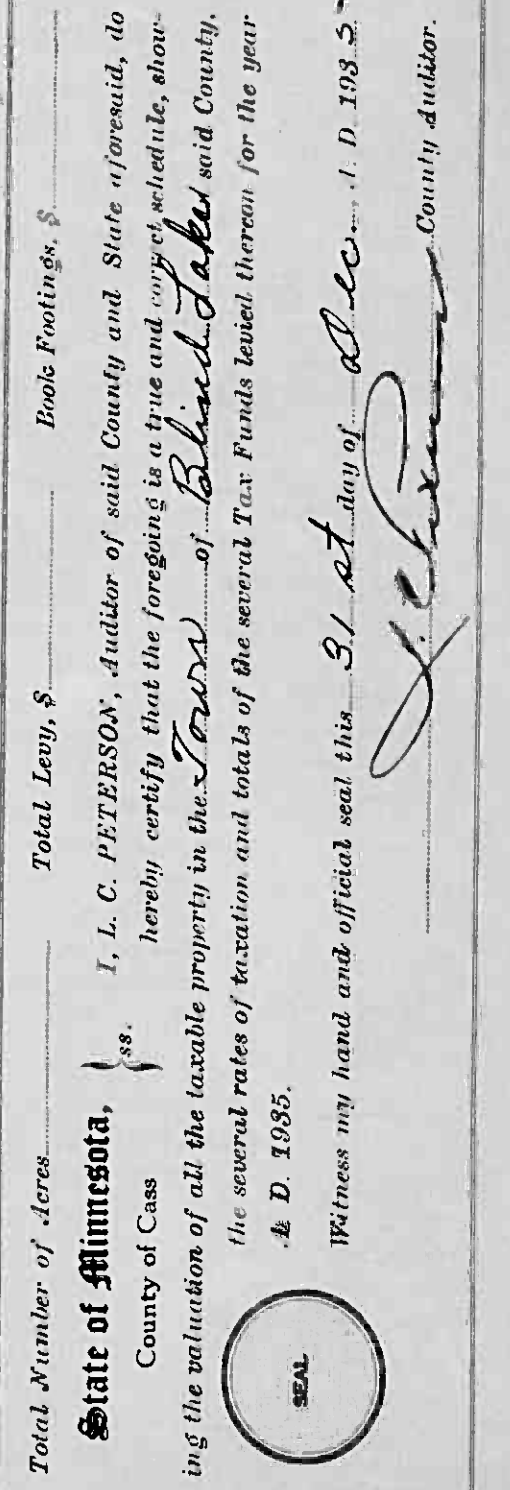 Total Number of Acres Total Levy, $ Book Footings, $
State of Minnesota,
County of Cass
} ss.
I, L. C. PETERSON, Auditor of said County and State aforesaid, do
hereby certify that the foregoing is a true and correct schedule, show-
ing the valuation of all the taxable property in the Town of Blind Lake said County,
the several rates of taxation and totals of the several Tax Funds levied thereon for the year
A. D. 1935.
Witness my hand and official seal this 31st day of Dec. A. D. 1935
L. C. Peterson County Auditor.
SEAL